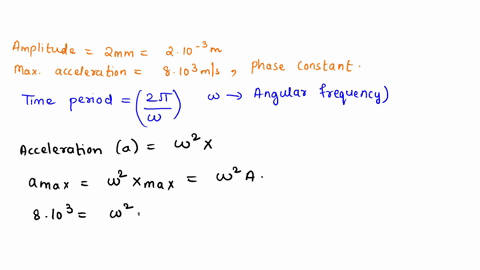 Amplitude = 2mm = 2.10⁻³ m
Max. acceleration = 8.10³ m/s , phase constant.
Time period = (2π/ω) ω → Angular frequency)
Acceleration (a) = ω² x
a max = ω² x max = ω² A.
8.10³ = ω².